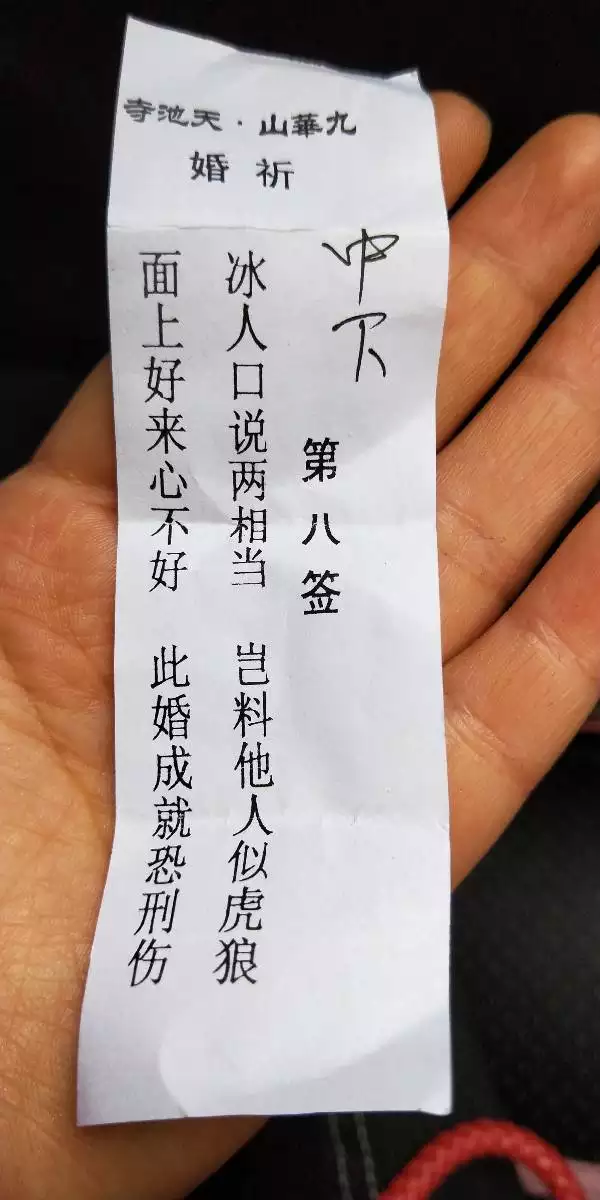 九華山·天池寺
祈婚
中下
第八签
冰人口说两相当 岂料他人似虎狼
面上好来心不好 此婚成就恐刑伤